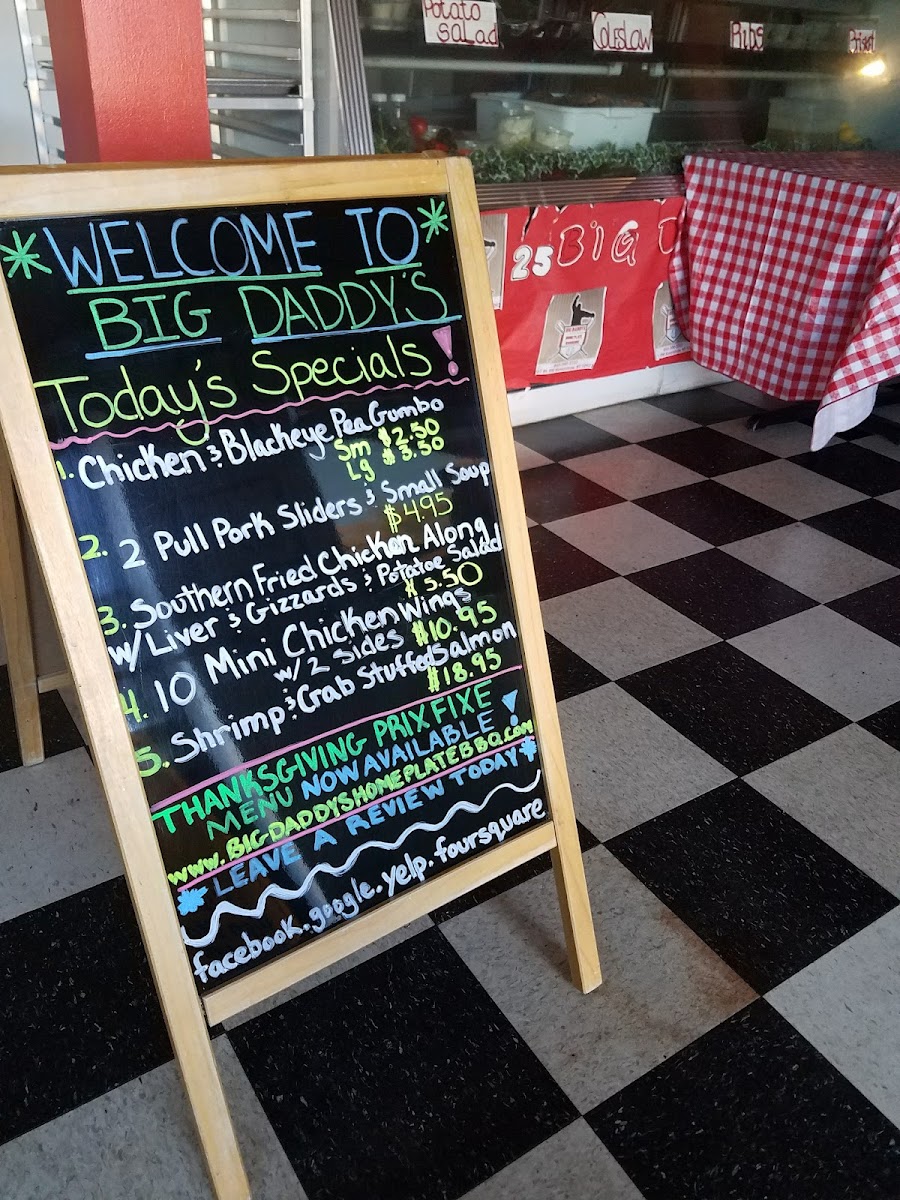 Potato
Salad
Coleslaw
Ribs
25 BIG D
WELCOME TO
BIG DADDY'S
Today's Specials!
1. Chicken & Blackeye Pea Gumbo
Sm $2.50
Lg $3.50
2. 2 Pull Pork Sliders & Small Soup
$4.95
3. Southern Fried Chicken Along
w/ Liver & Gizzards & Potatoe Salad
$5.50
4. 10 Mini Chicken Wings
w/ 2 sides $10.95
5. Shrimp & Crab Stuffed Salmon
$18.95
THANKSGIVING PRIX FIXE
MENU NOW AVAILABLE!
www.BIGDADDYSHOMEPLATEBBQ.com
* LEAVE A REVIEW TODAY *
facebook.google.yelp.foursquare